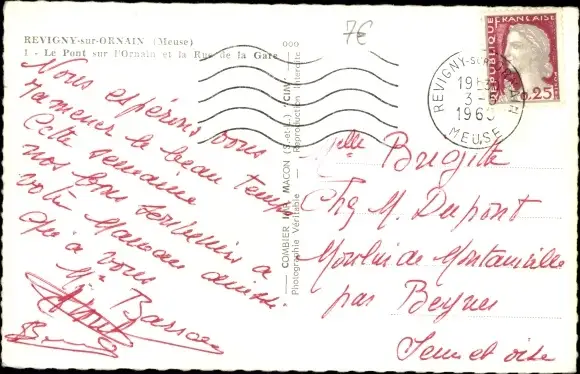 REVIGNY-sur-ORNAIN (Meuse)
1 - Le Pont sur l'Ornain et la Rue de la Gare
7€
Nous espérons vous
ramener le beau temps
Cette semaine
nos bons souvenirs à
votre Maman ainsi
qu'à vous
Me
COMBIER IMP. MACON (S.-et-L.) "CIM"
Photographie Véritable - Reproduction Interdite
REPUBLIQUE FRANÇAISE
0,25
REVIGNY-SUR-ORNAIN
3-
MEUSE
Melle Brigitte
Chez M. Dupont
Moulin de Montainville
par Beynes
Seine et oise